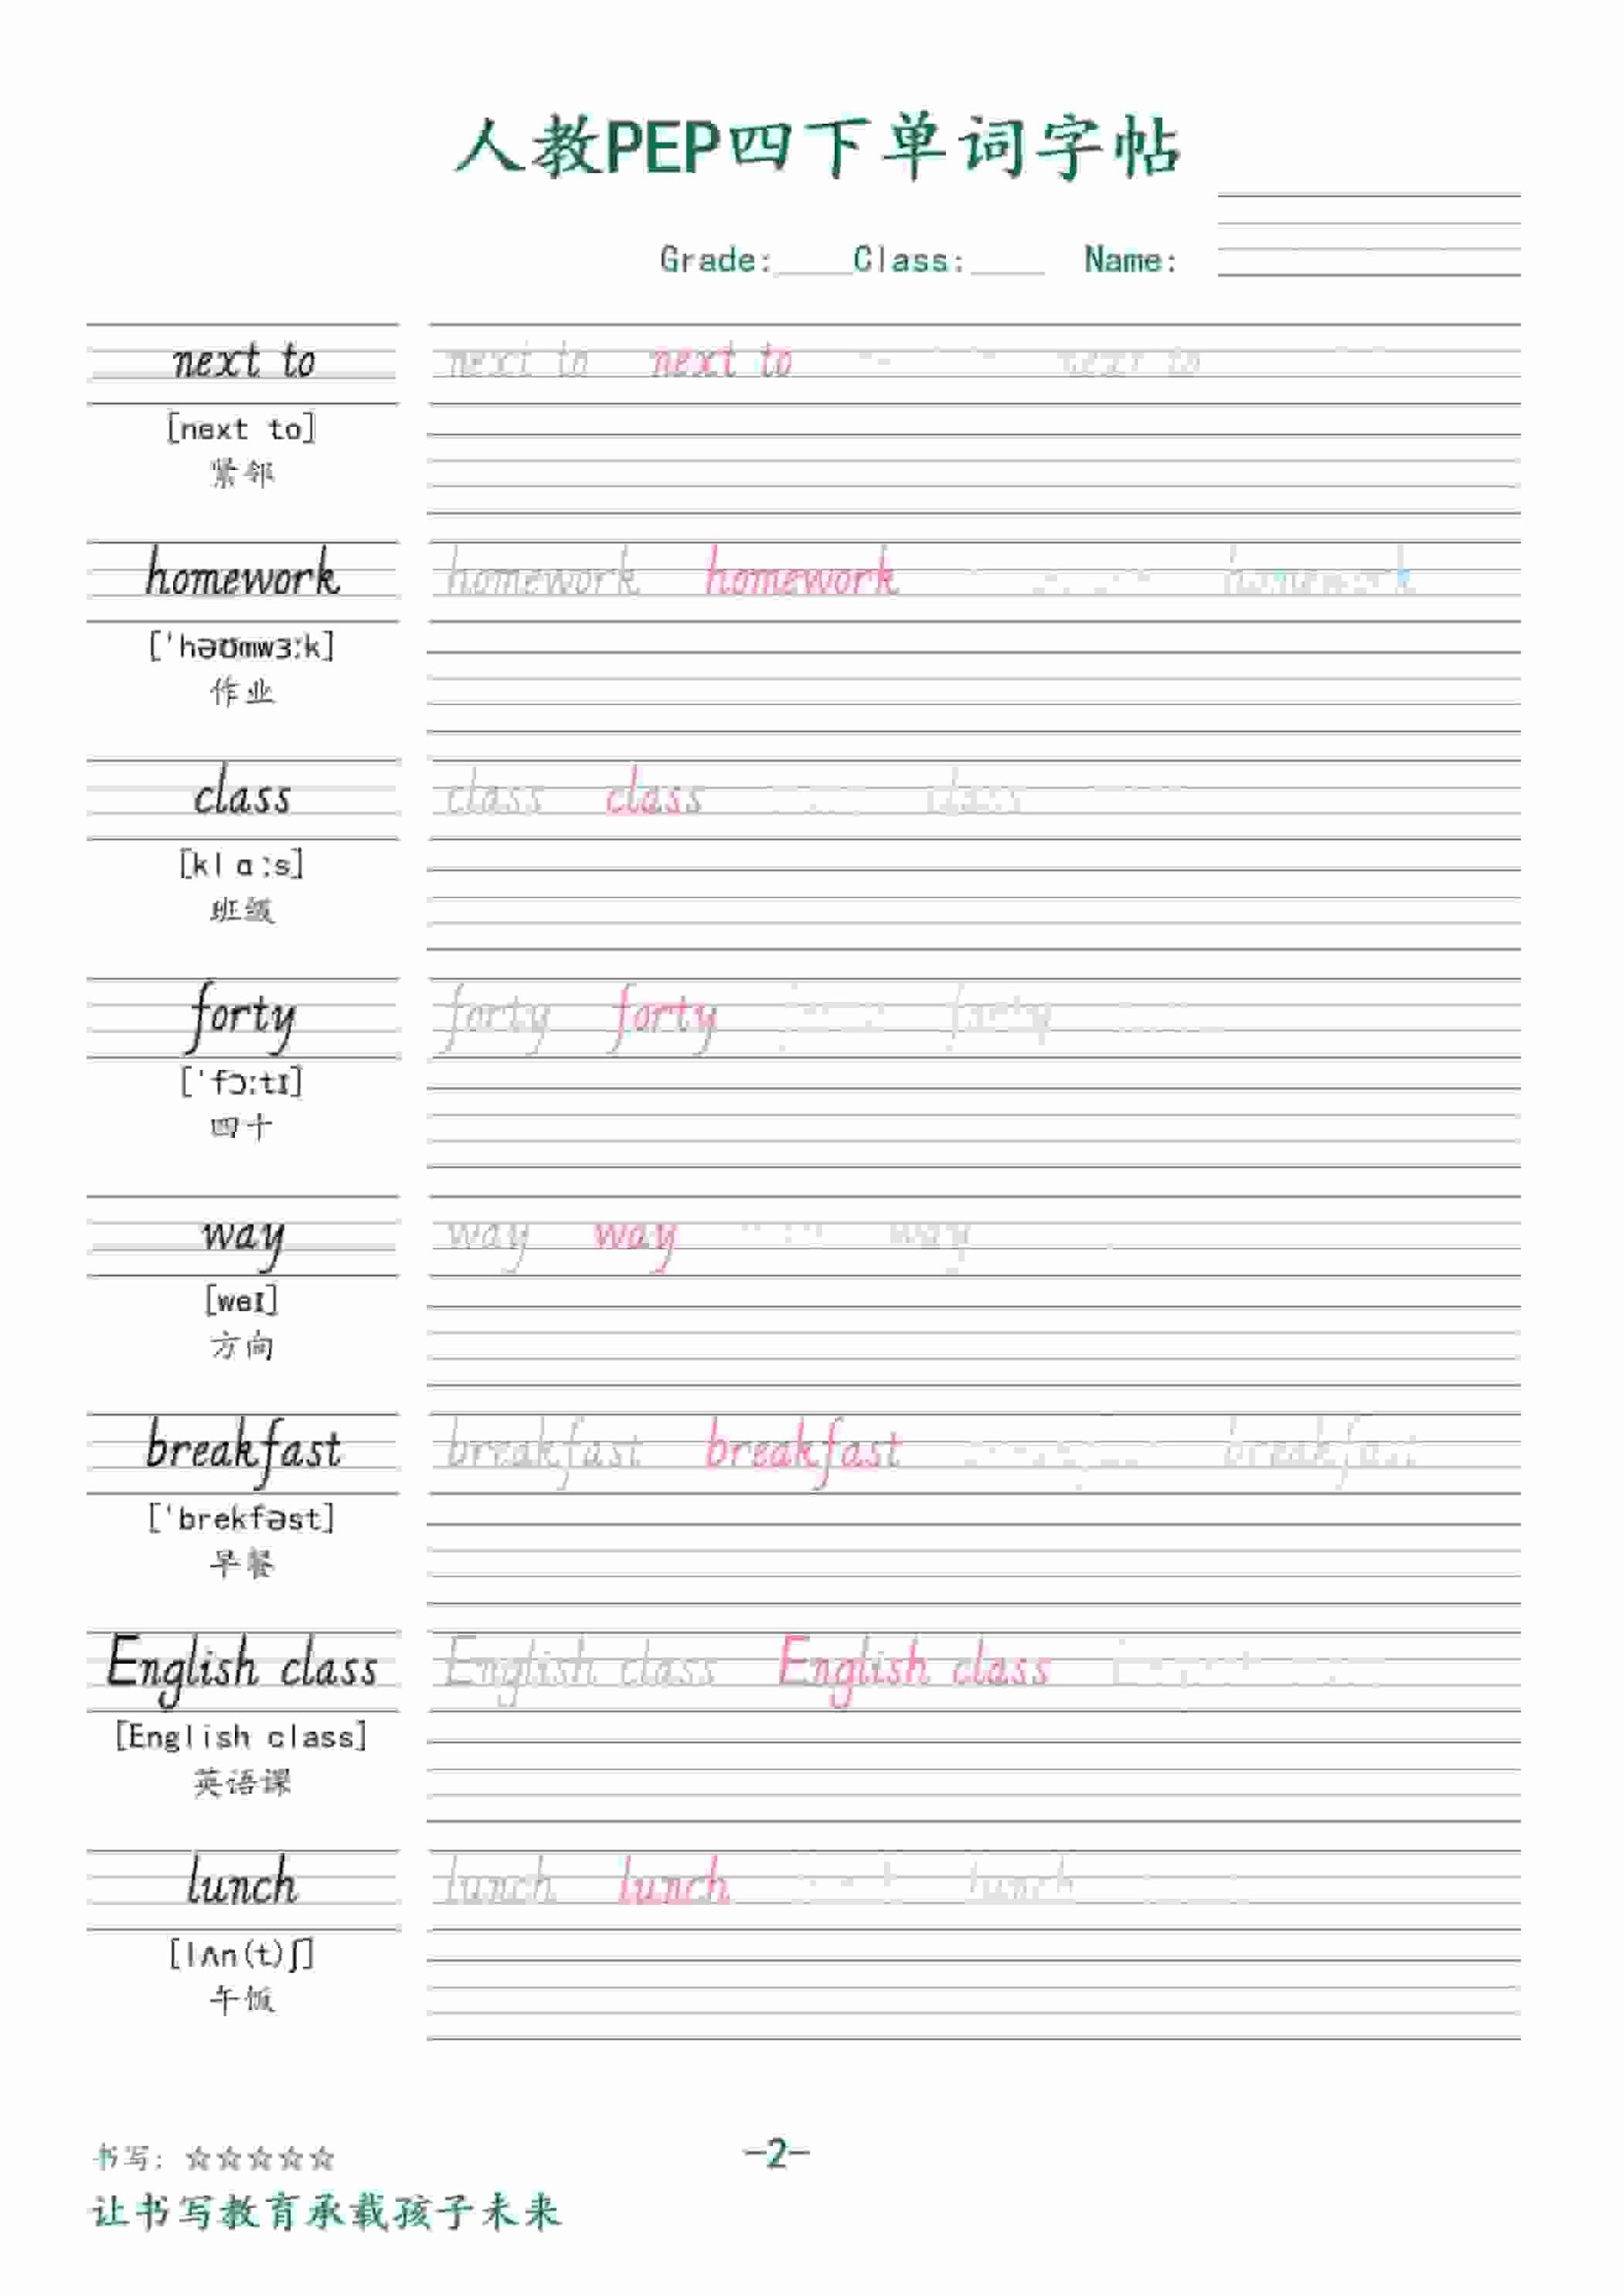 人教PEP四下单词字帖
Grade:____Class:____ Name:
next to next to next to next to
[next to]
紧邻
homework homework homework homework
['həʊmwɜːk]
作业
class class class class
[klɑːs]
班级
forty forty forty forty
['fɔːtɪ]
四十
way way way way
[weɪ]
方向
breakfast breakfast breakfast breakfast
['brekfəst]
早餐
English class English class English class
[English class]
英语课
lunch lunch lunch lunch
[lʌn(t)ʃ]
午饭
书写：☆☆☆☆☆
-2-
让书写教育承载孩子未来